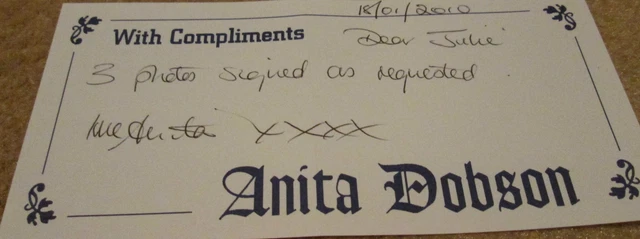 18/01/2010
With Compliments Dear Julie
3 photos signed as requested
Anita XXXX
Anita Dobson